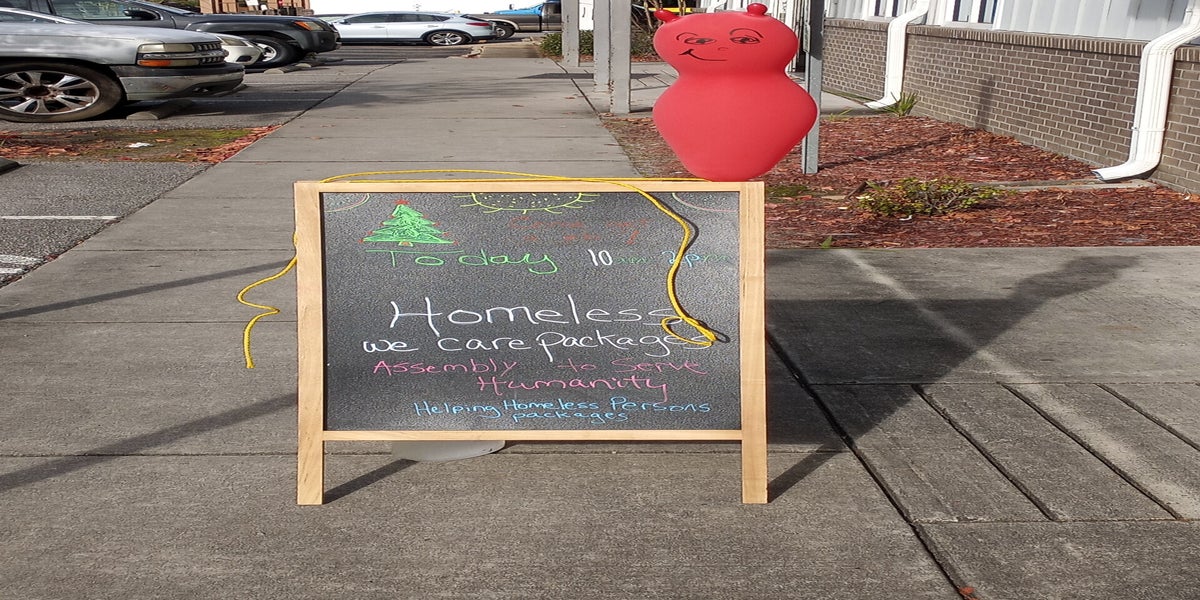 Today 10am 2pm
Homeless
we care packages
Assembly to Serve
Humanity
Helping Homeless Persons
packages